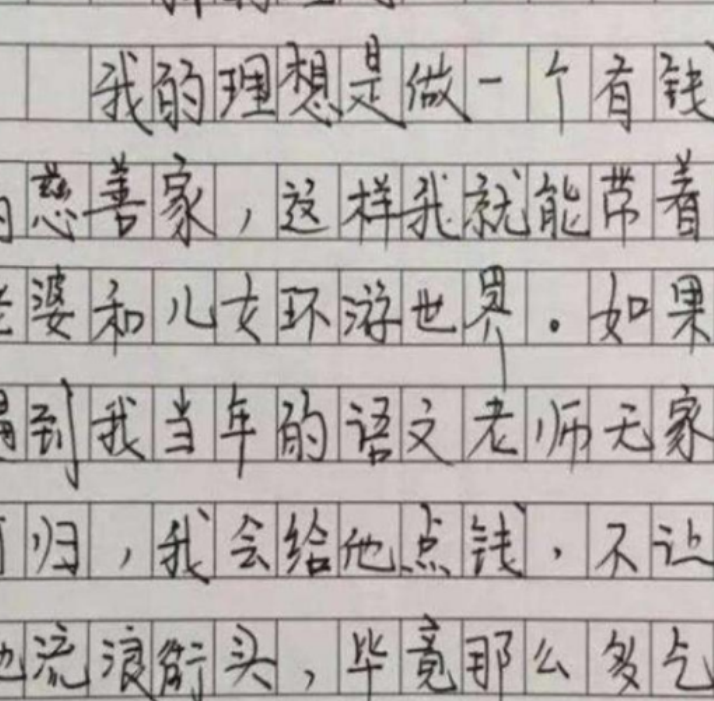 我的理想是做一个有钱
慈善家，这样我就能带着
老婆和儿女环游世界。如果
遇到我当年的语文老师无家
可归，我会给他点钱，不让
他流浪街头，毕竟那么多